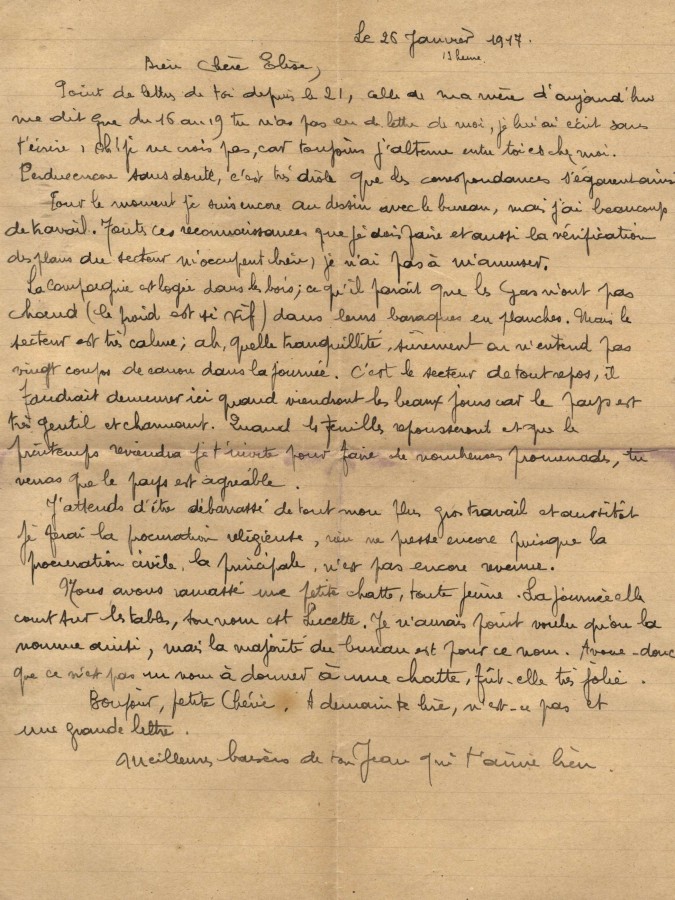 Le 26 Janvier 1917.
13 heure.
Bien Chère Elise,
Point de lettre de toi depuis le 21, celle de ma mère d'aujourd'hui
me dit que du 16 au 19 tu n'as pas eu de lettre de moi, je lui ai écrit sans
t'écrire, oh! je ne crois pas, car toujours j'alterne entre toi et chez moi.
Perdue encore sans doute, c'est très drôle que des correspondances s'égarent ainsi
Pour le moment je suis encore au dessin avec le bureau, mais j'ai beaucoup
de travail. Toutes ces reconnaissances que je dois faire et aussi la vérification
des plans du secteur m'occupent bien, je n'ai pas à m'amuser.
La Compagnie est logée dans les bois; ce qu'il paraît que les Gas n'ont pas
chaud (le froid est si vif) dans leurs baraques en planches. Mais le
secteur est très calme; ah, quelle tranquillité, sûrement on n'entend pas
vingt coups de canon dans la journée. C'est le secteur de tout repos, il
faudrait demeurer ici quand viendront les beaux jours car le pays est
très gentil et charmant. Quand les feuilles repousseront et que le
printemps reviendra je t'invite pour faire de nombreuses promenades, tu
verras que le pays est agréable.
J'attends d'être débarrassé de tout mon plus gros travail et aussitôt
je ferai la procuration religieuse, rien ne presse encore puisque la
procuration civile, la principale, n'est pas encore revenue.
Nous avons ramassé une petite chatte, toute jeune. La journée elle
court sur les tables, son nom est Lucette. Je n'aurais point voulu qu'on la
nomme ainsi, mais la majorité du bureau est pour ce nom. Avoue-donc
que ce n'est pas un nom à donner à une chatte, fût-elle très jolie.
Bonjour, petite Chérie. A demain te lire, n'est-ce pas et
une grande lettre.
Meilleurs baisers de ton Jean qui t'aime bien.